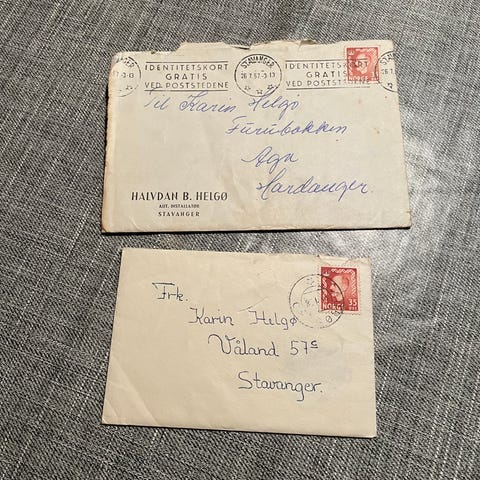 IDENTITETSKORT
GRATIS
VED POSTSTEDENE
STAVANGER
26.7.57.-3.13
IDENTITETSKORT
GRATIS
VED POSTSTEDENE
Til Karin Helgø
Furubakken
Aga
Hardanger.
HALVDAN B. HELGØ
AUT. INSTALLATØR
STAVANGER
NORGE
35
Frk.
Karin Helgø
Våland 57c
Stavanger.